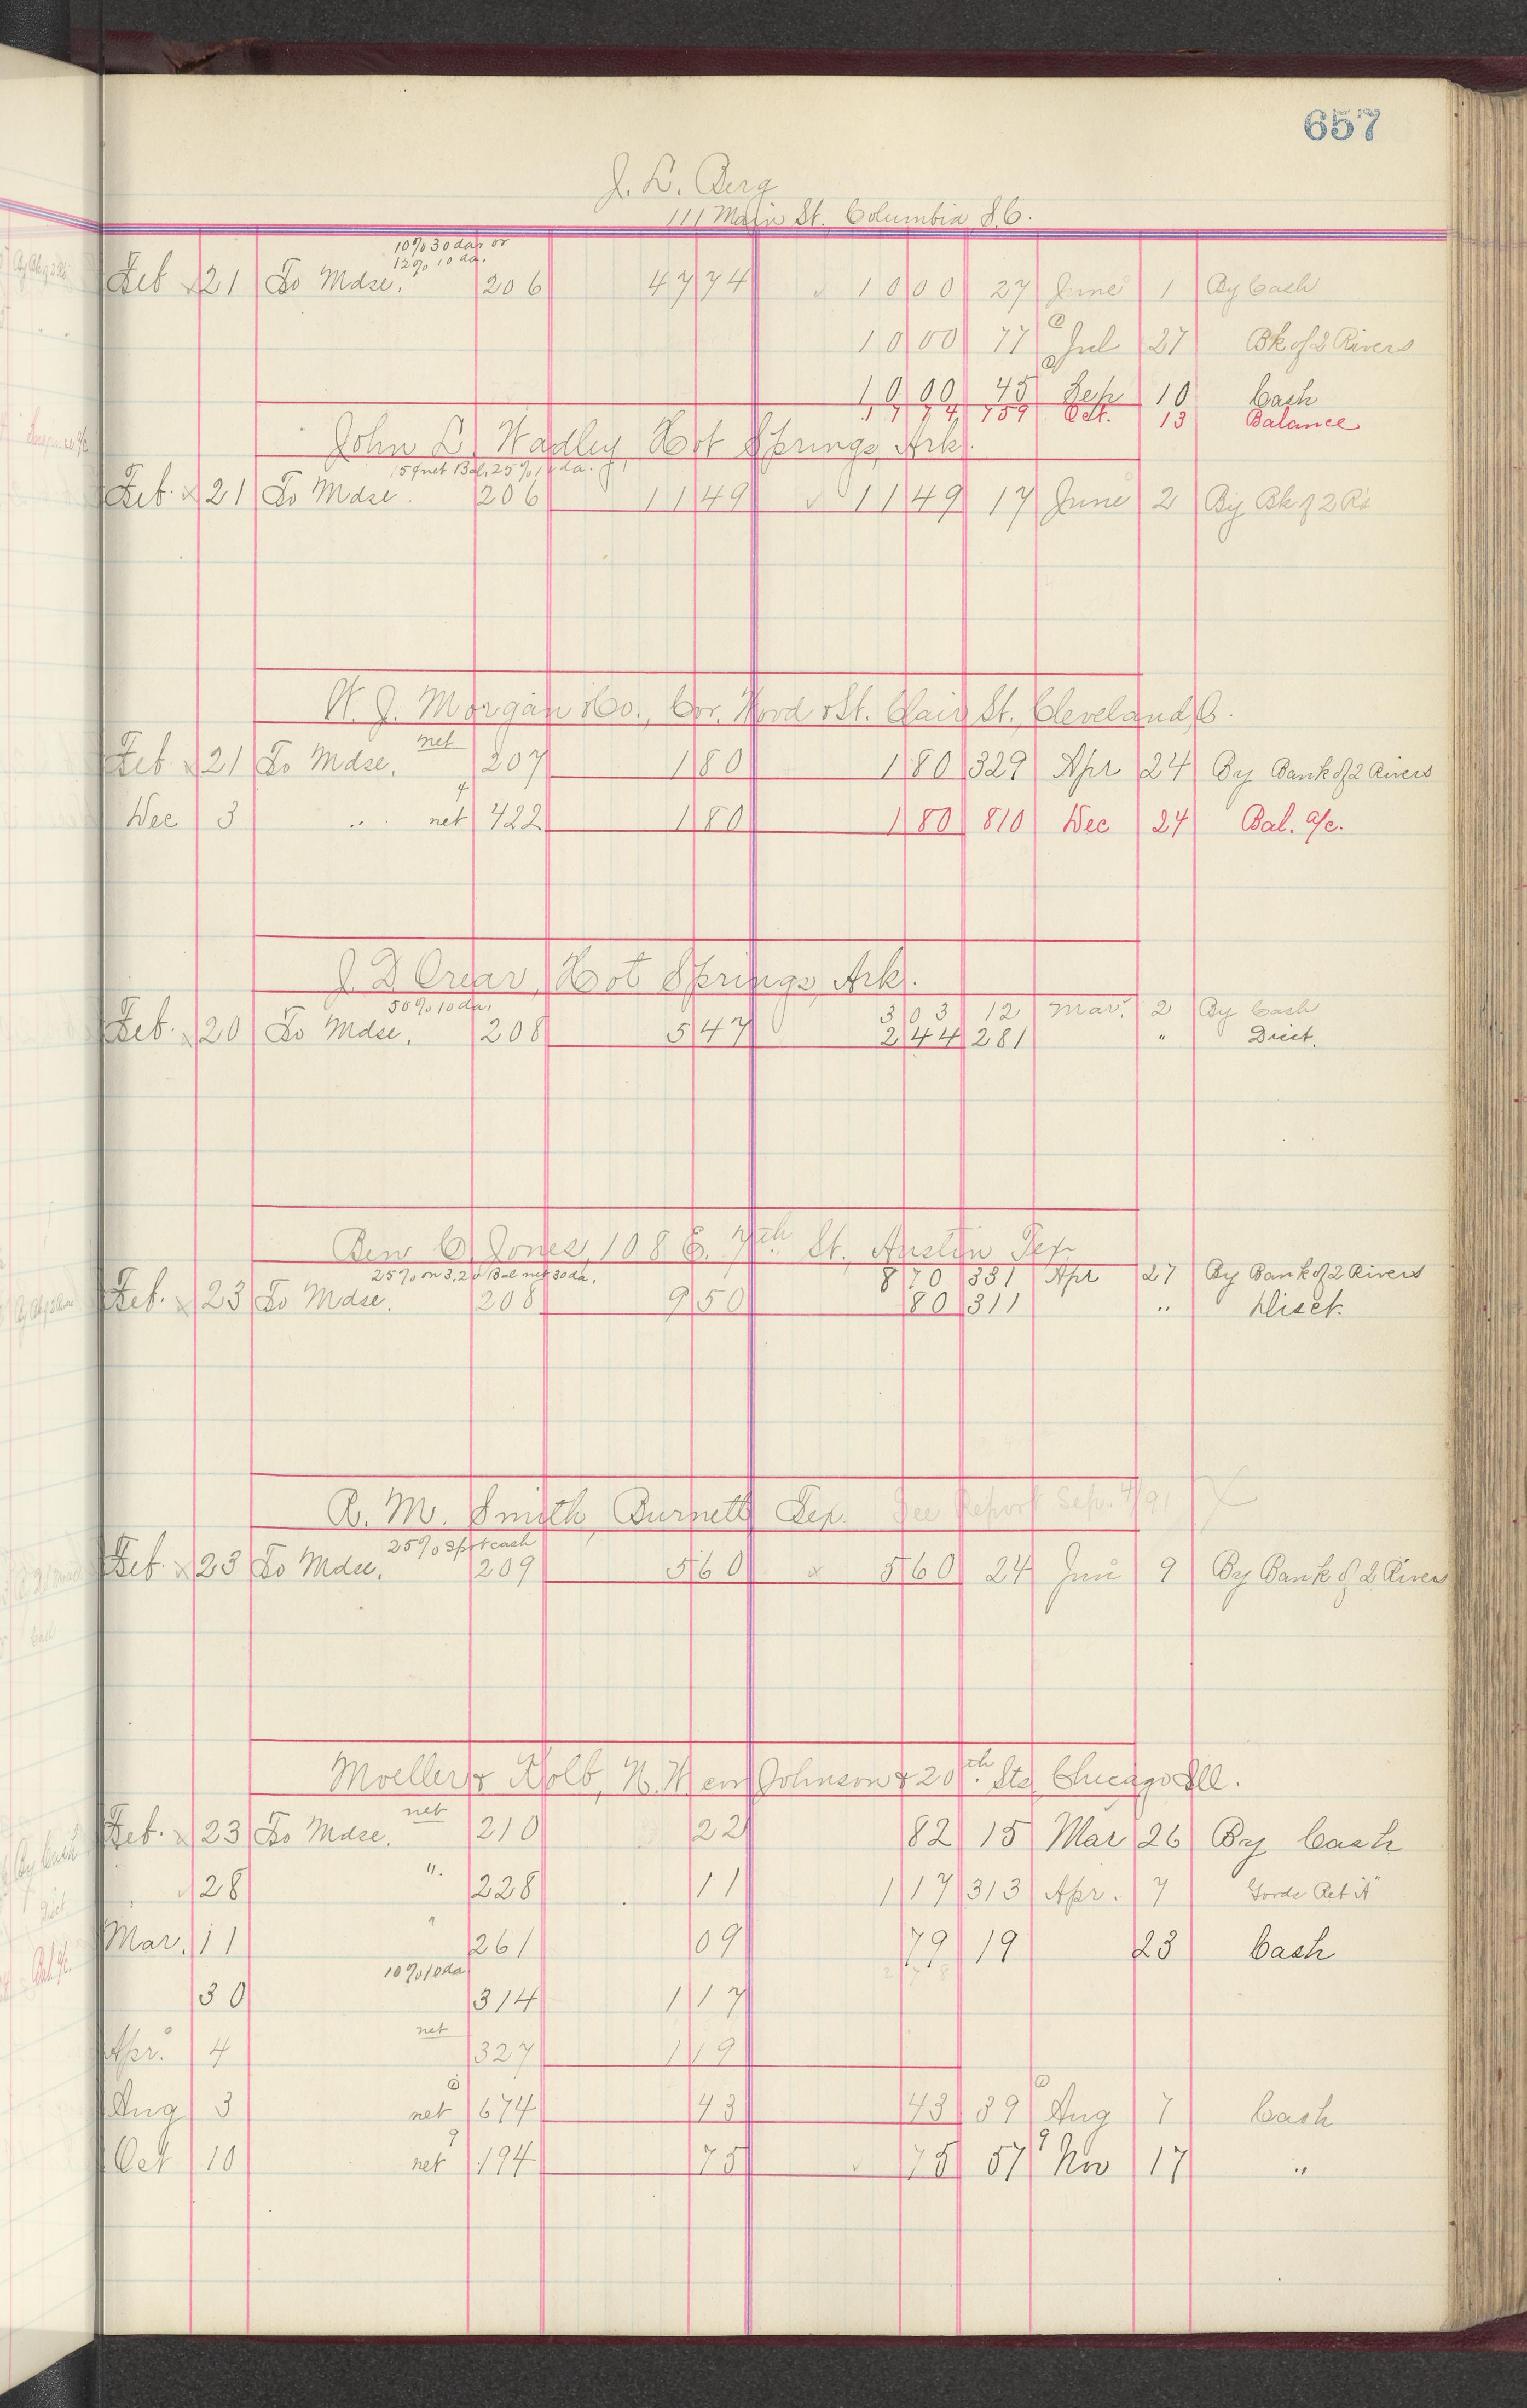 657
J. L. Berg
111 Main St. Columbia S.C.
10% 30 das or
12% 10 da.
Feb 21 To Mdse. 206 47 74 10 00 27 June 1 By Cash
10 00 77 Jul 27 Bk of 2 Rivers
10 00 45 Sep 10 Cash
17 74 759 Oct. 13 Balance
John L. Wadley Hot Springs, Ark.
Feb. 21 To Mdse. 206 11 49 11 49 17 June 2 By Bk of 2 R's
W. J. Morgan & Co., Cor. Wood & St. Clair St. Cleveland, O.
net
Feb 21 To Mdse. 207 1 80 1 80 329 Apr 24 By Bank of 2 Rivers
Dec 3 " net 422 1 80 1 80 810 Dec 24 Bal. a/c.
J. D Crear, Hot Springs, Ark.
50% 10 da. 3 03 12 Mar. 2 By Cash
Feb. 20 To Mdse. 208 5 47 2 44 281 " Disct.
Ben C Jones, 108 E. 7th St. Austin Tex
25% on 3,20 Bal net 30 da. 8 70 331 Apr 27 By Bank of 2 Rivers
Feb. 23 To Mdse. 208 9 50 80 311 " Disct.
R. M. Smith, Burnett Tex. See Report Sep. 4/91 X
25% spot cash
Feb. 23 To Mdse. 209 5 60 5 60 24 Jun 9 By Bank of 2 Rivers
Moeller & Kolb, N.W cor Johnson & 20th Sts, Chicago Ill.
net
Feb. 23 To Mdse. 210 22 82 15 Mar 26 By Cash
28 " 228 11 1 17 313 Apr. 7 "Goods Ret'd"
Mar. 11 " 261 09 79 19 23 Cash
10% 10 da 2 7 8
30 314 1 17
net
Apr. 4 327 1 19
Aug 3 net 674 43 43 39 Aug 7 Cash
Oct 10 net 194 75 75 57 Nov 17 "